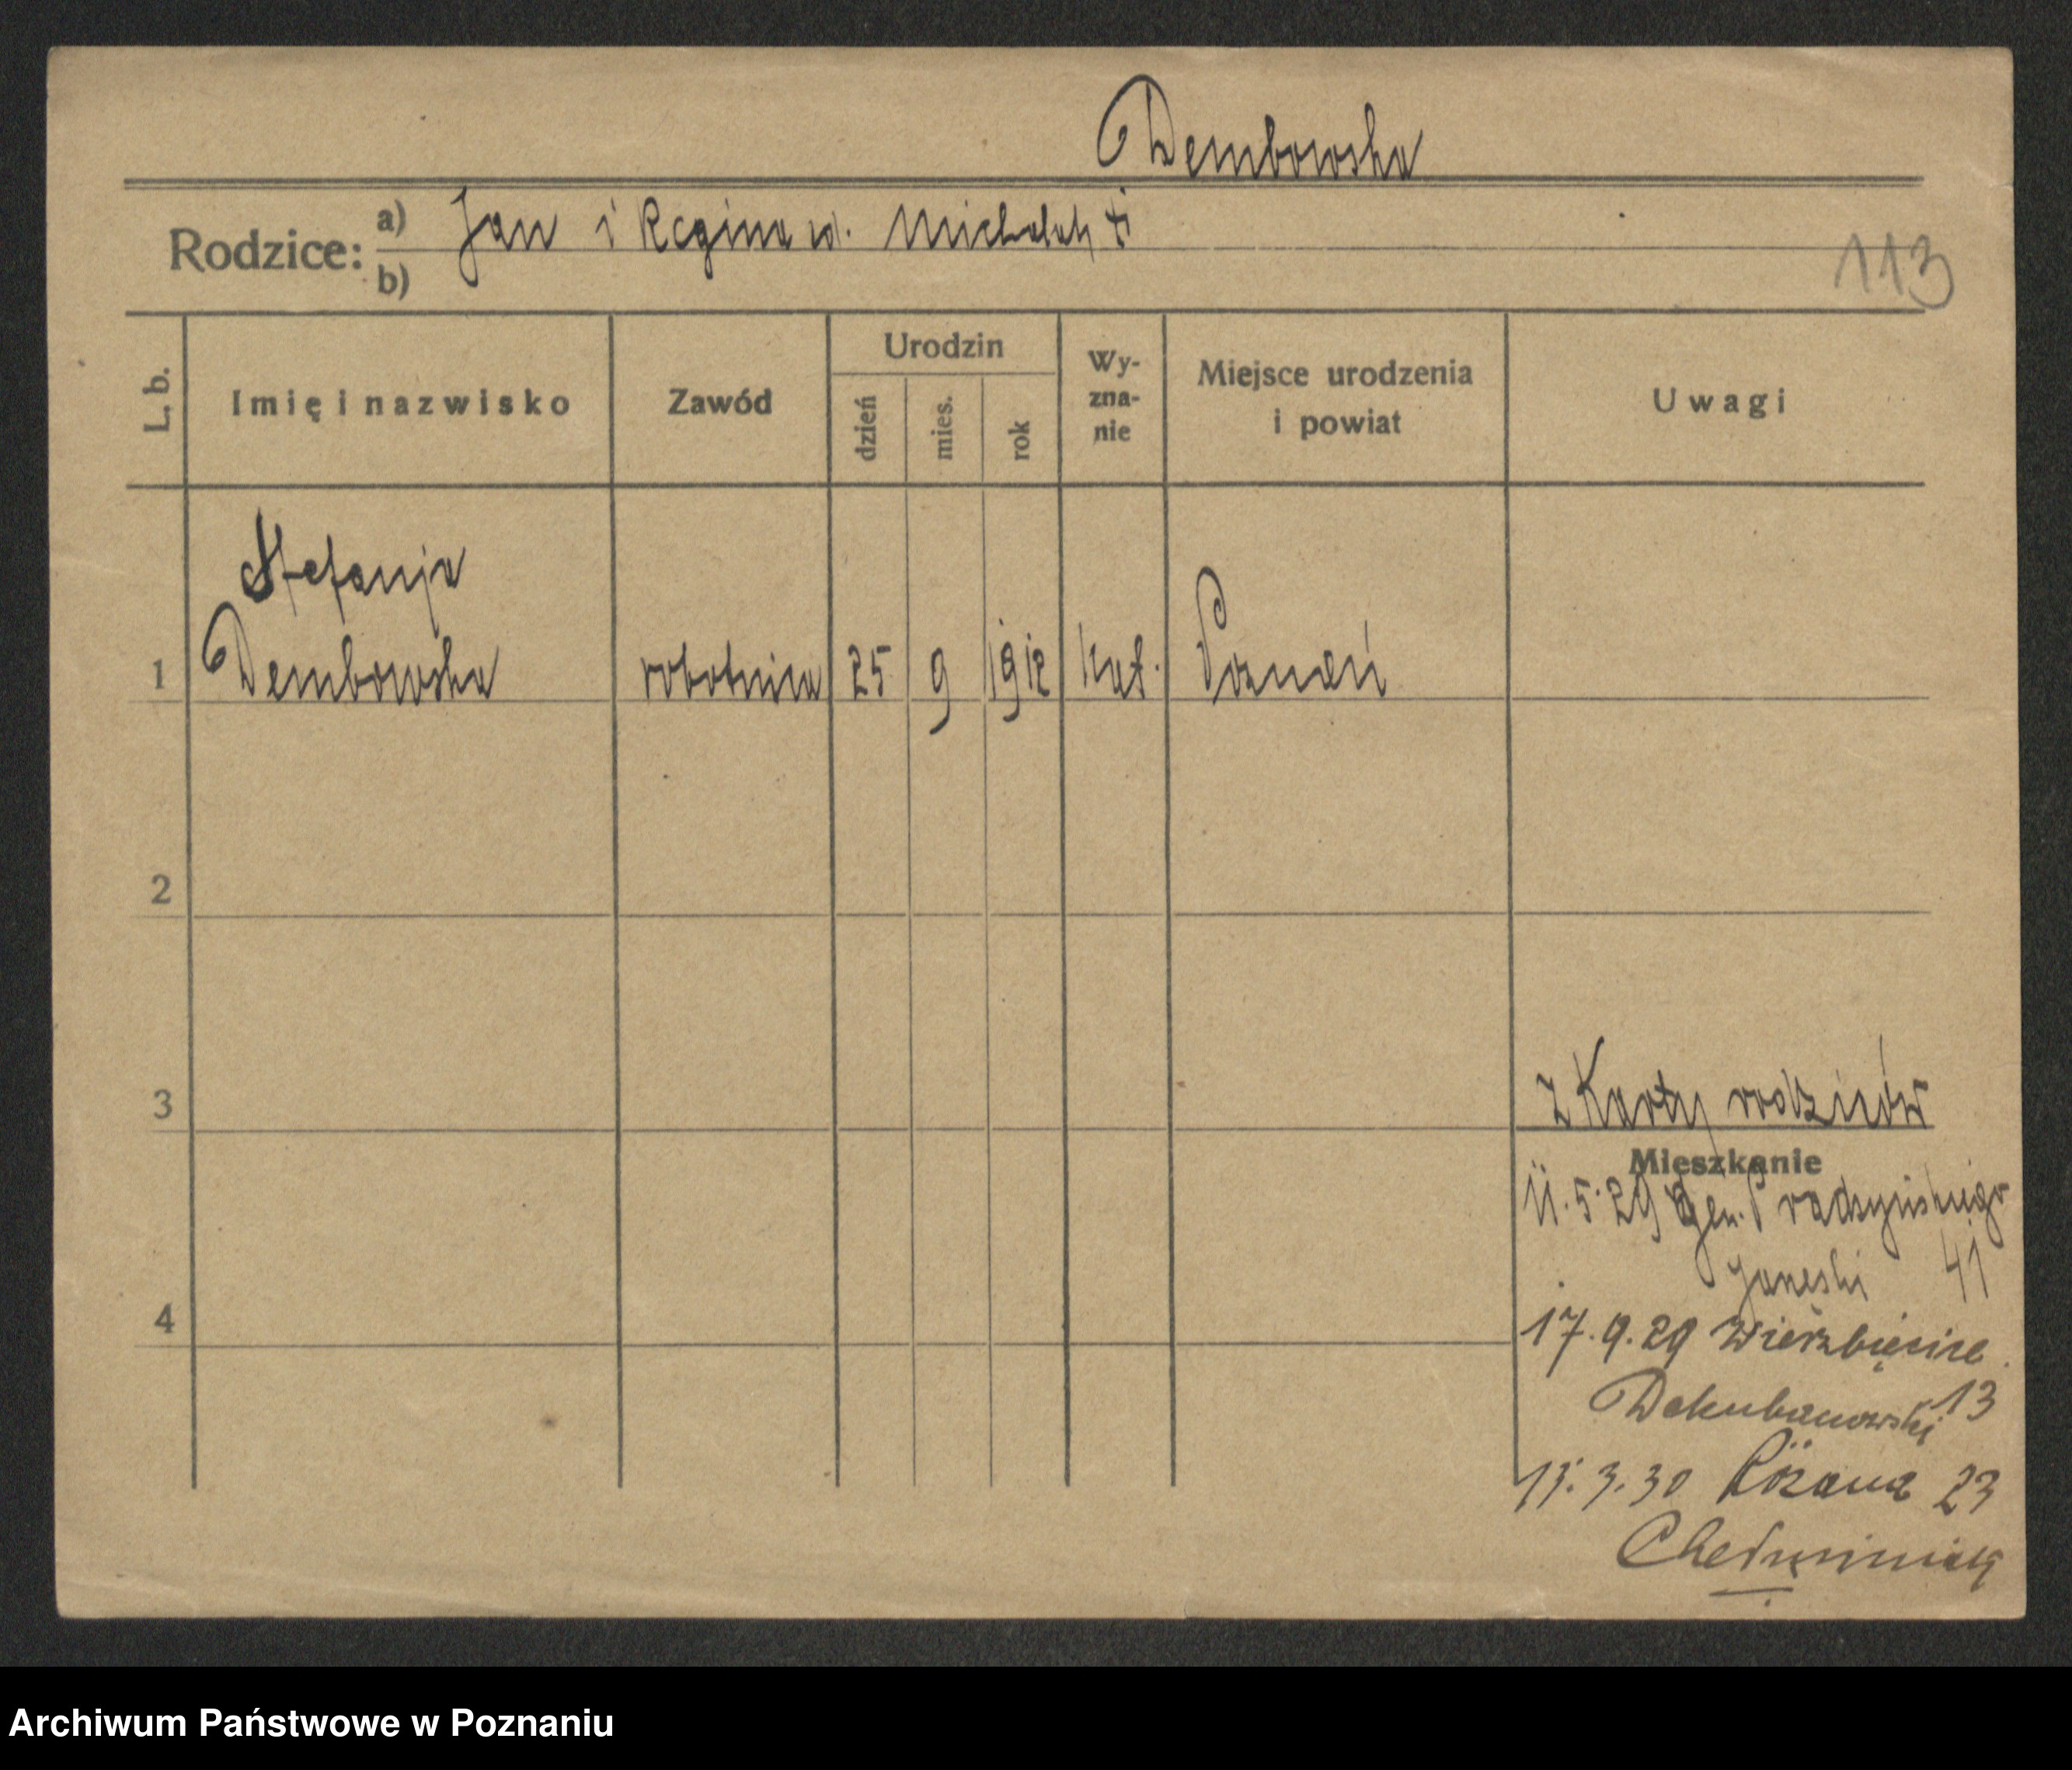 Dembowska
Rodzice: a) Jan i Regina
b)
113
L. b.
Imię i nazwisko
Zawód
Urodzin
dzień
mies.
rok
Wy-
zna-
nie
Miejsce urodzenia
i powiat
Uwagi
Stefanja
1 Dembowska robotnica 25 9 1912 kat. Poznań
2
3
z Karty rodziców
Mieszkanie
11.5.29 Gen. Prądzyńskiego
41
4
17.9.29 Wierzbięcice
13
3.30 Różana 23
Archiwum Państwowe w Poznaniu